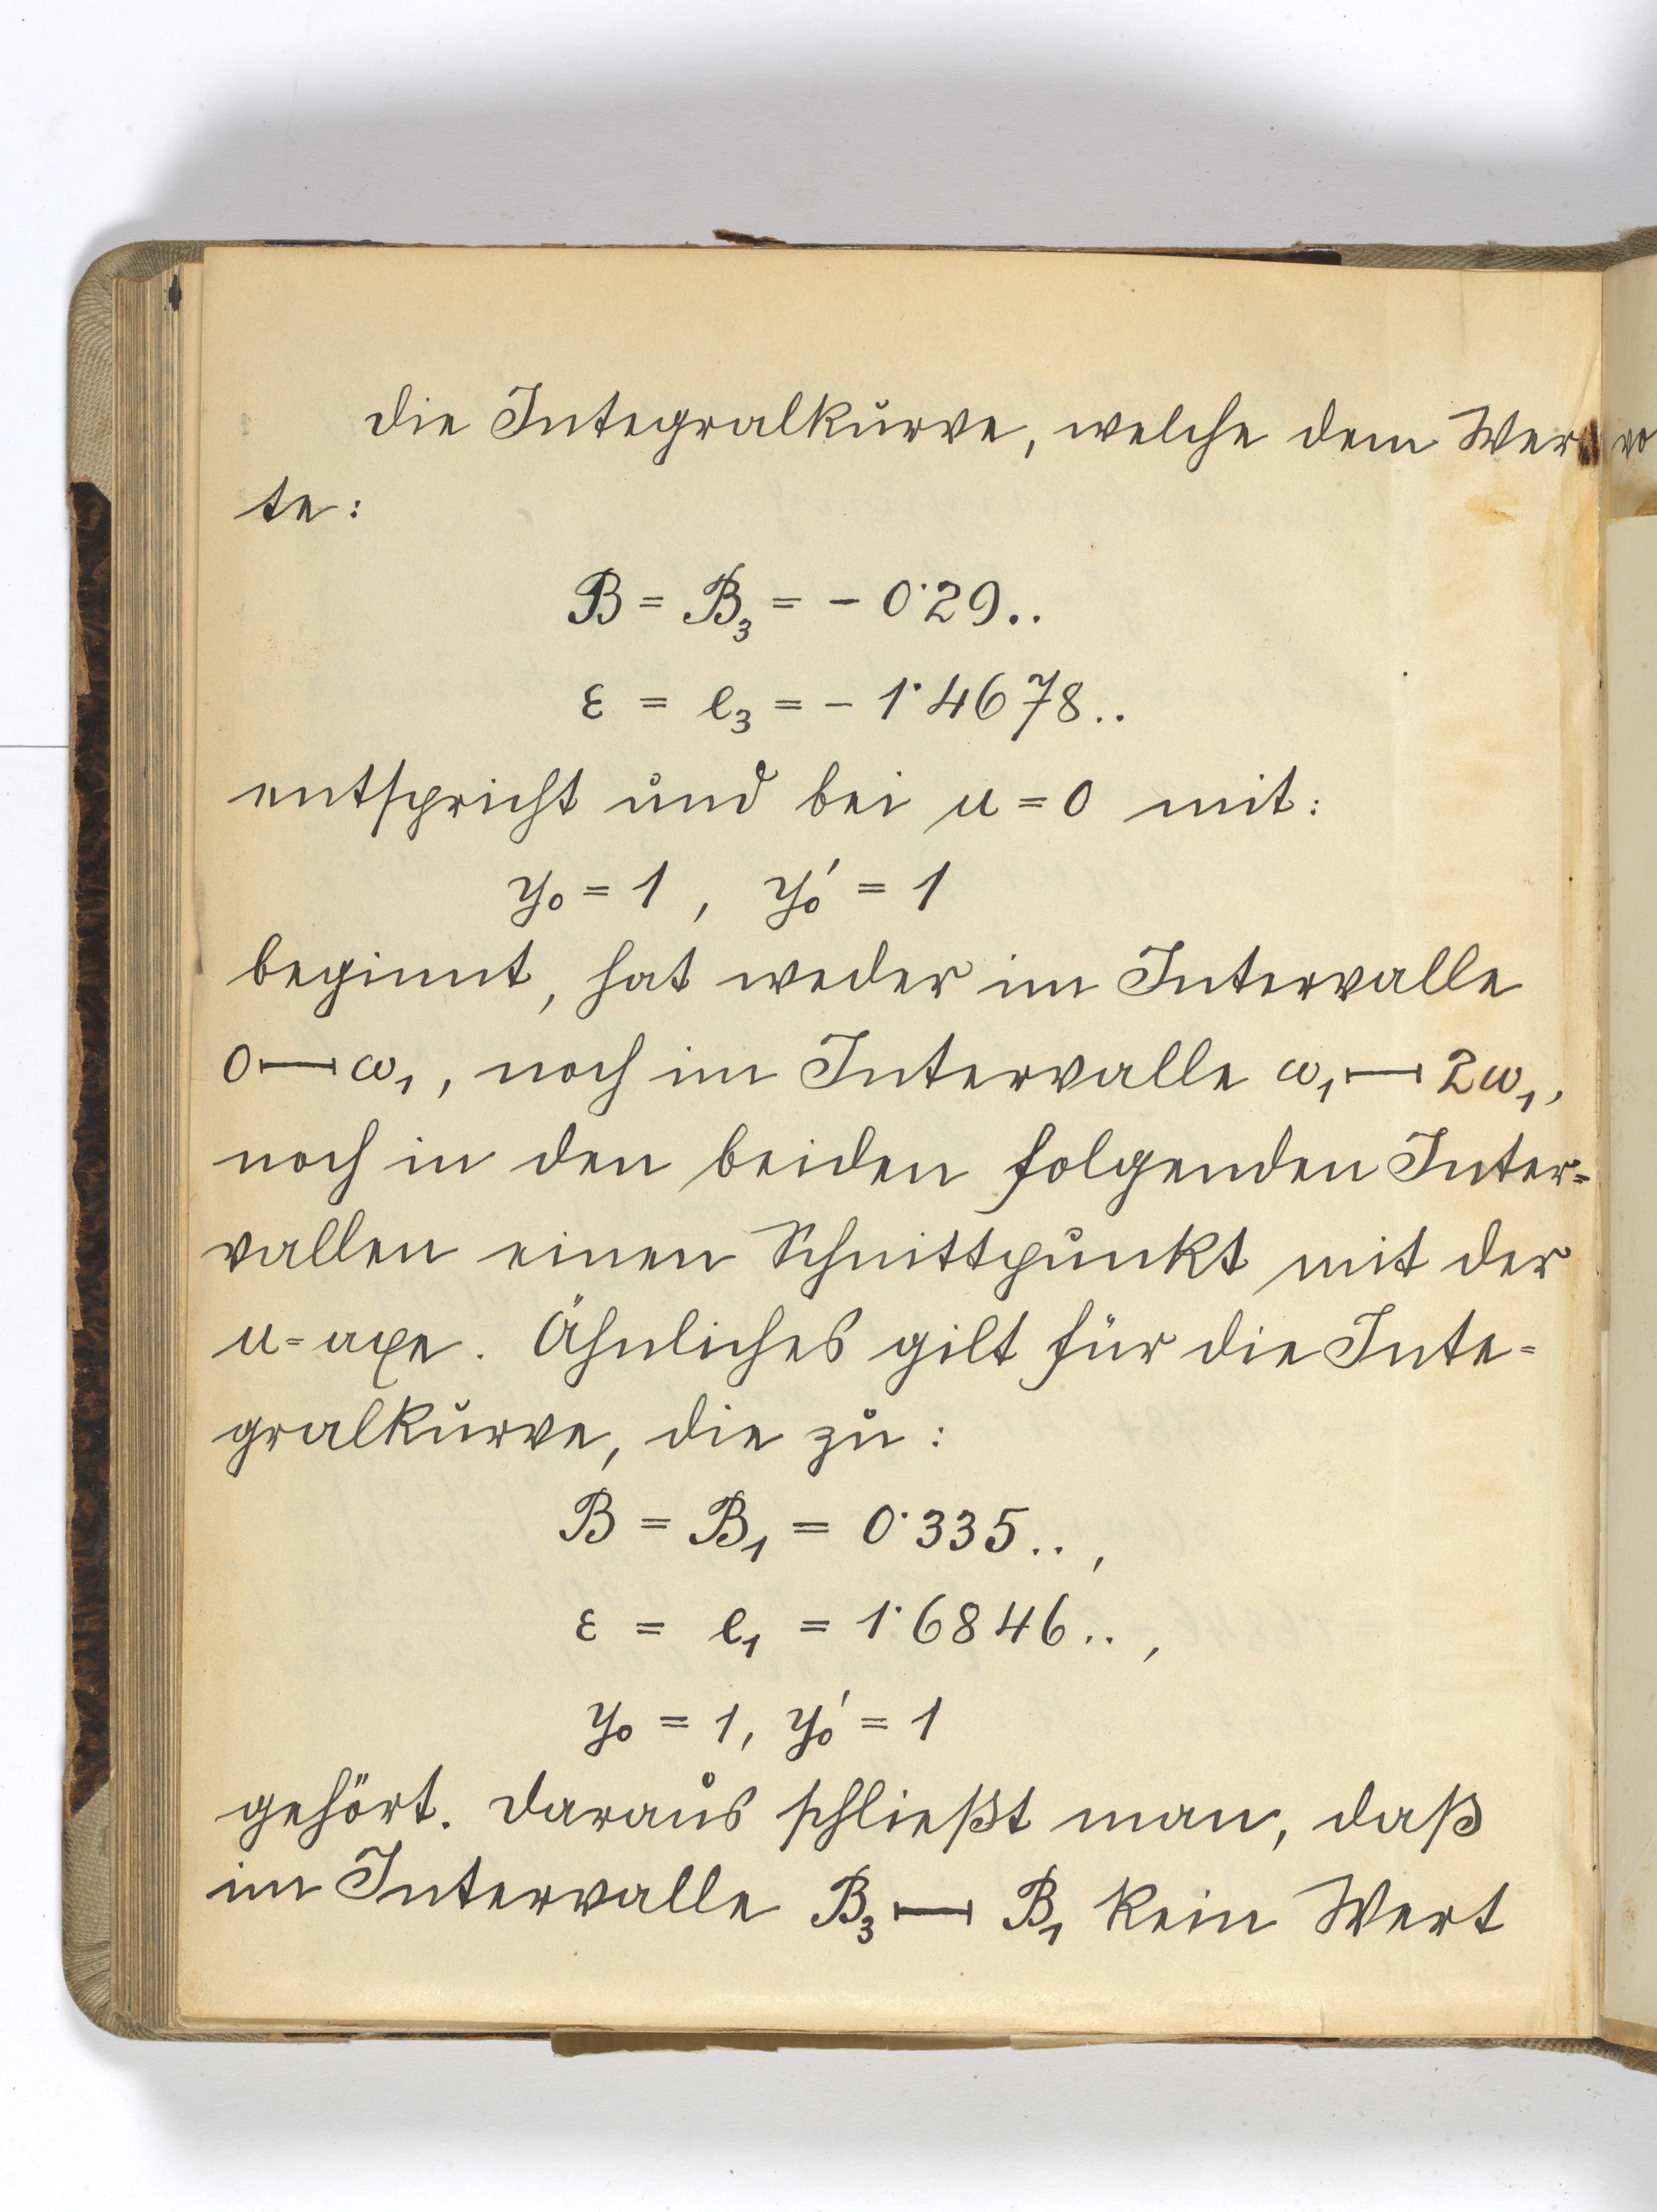 die Integralkurve, welche dem Wer
te:
B = B₃ = - 0·29..
ε = e₃ = - 1·4678..
entspricht und bei u = 0 mit:
y₀ = 1 , y₀′ = 1
beginnt, hat weder im Intervalle
0⊢⊣ω₁, noch im Intervalle ω₁⊢⊣2ω₁,
noch in den beiden folgenden Inter=
vallen einen Schnittpunkt mit der
u=axe. Ähnliches gilt für die Inte=
gralkurve, die zu:
B = B₁ = 0·335.. ,
ε = e₁ = 1·6846.. ,
y₀ = 1, y₀′ = 1
gehört. Daraus schließt man, daß
im Intervalle B₃⊢⊣B₁ kein Wert